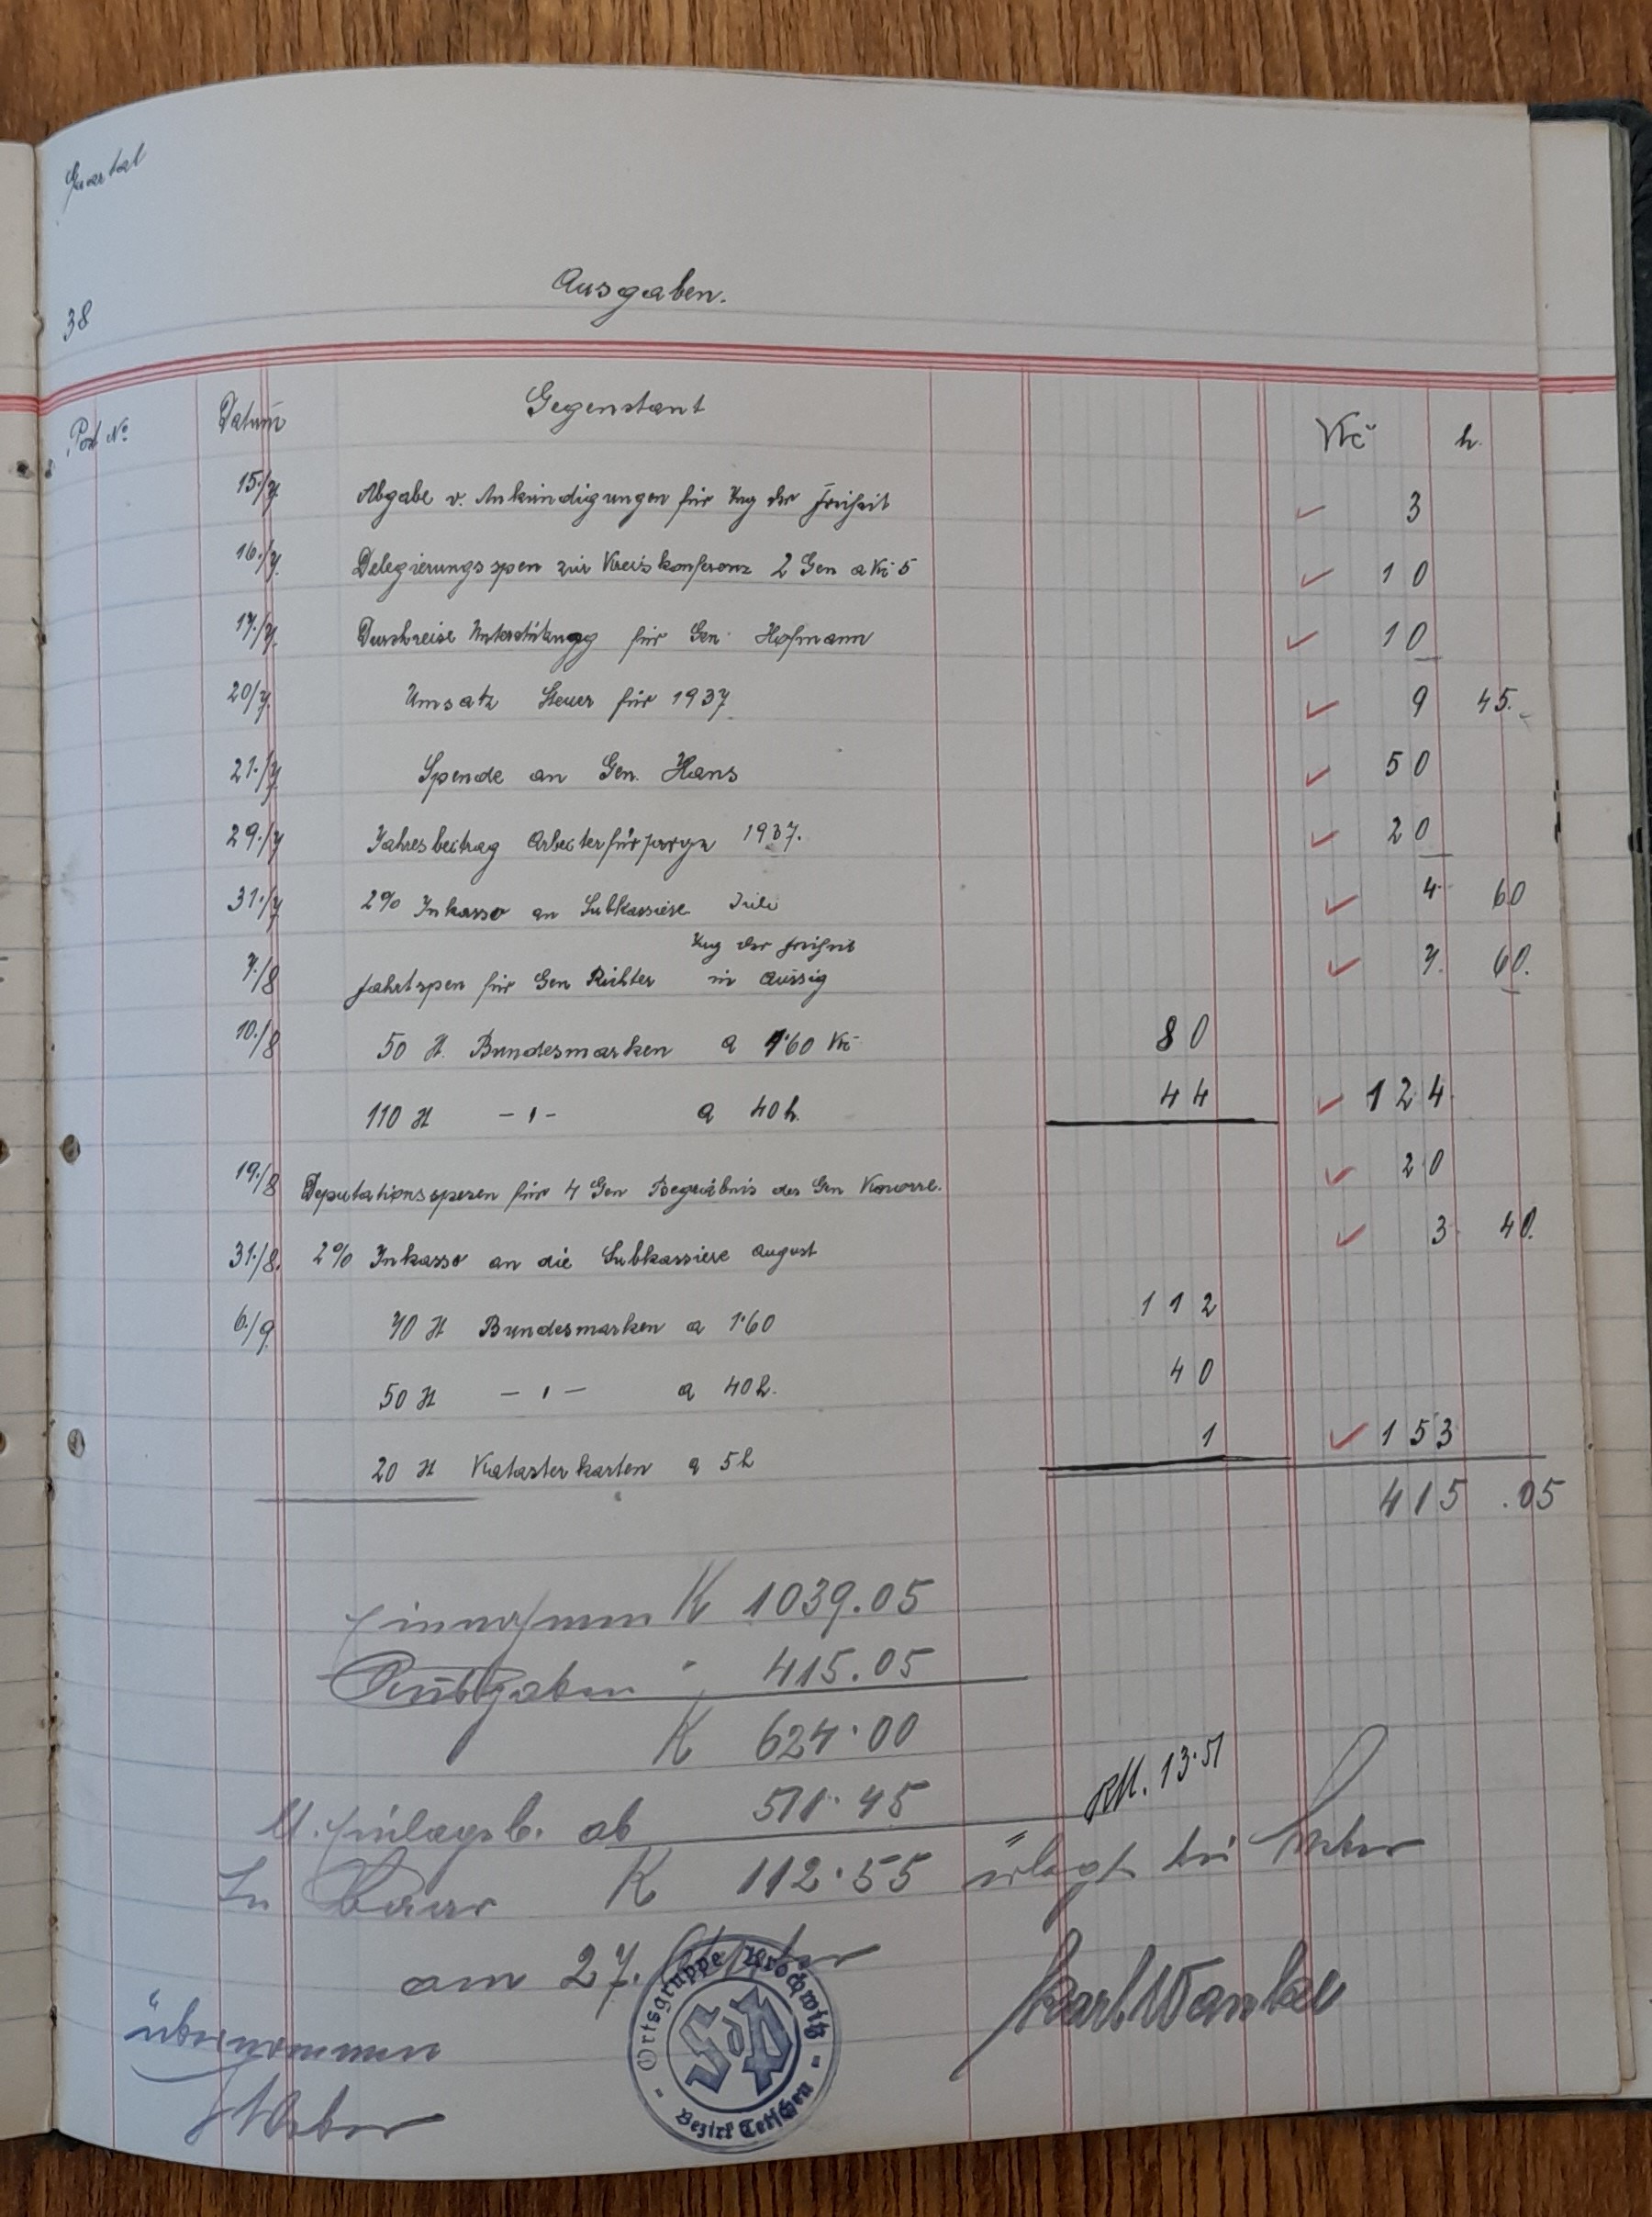 Quartal
38
Ausgaben.
Post No Datum Gegenstant Kč h.
15./7. Abgabe v. Ankündigungen für Tag der Freiheit 3
16./7. Delegierungsspen zur Kreiskonferenz 2 Gen a Kč 5 10
17./7. Durchreise Unterstützung für Gen. Hofmann 10
20/7. Umsatz Steuer für 1937 9 45.-
21./7. Spende an Gen. Hans 50
29./7 Jahresbeitrag Arbeiterfürsorge 1937. 20
31./7 2% Inkasso an Subkassiere Juli 4 60
Tag der Freiheit
7./8 Fahrtspen für Gen Richter in Aussig 7. 60.
10./8 50 St. Bundesmarken a 1·60 Kč 80
110 St -"- a 40 h. 44 124
19./8 Deputationsspesen für 4 Gen Begräbnis des Gen 20
31./8. 2% Inkasso an die Subkassiere August 3 40.
6./9. 70 St Bundesmarken a 1·60 112
50 St -"- a 40 h. 40
20 St Katasterkarten a 5 h 1 153
415 .05
Einnahmen K 1039.05
Ausgaben " 415.05
K 624·00
lt. Einlagsb. ab 511·45 RM. 13·51
In Baar K 112·55 erlegt bei Weber
am 27. Oktober
Karl Wanke
übernommen
Weber
Ortsgruppe Kröchwitz
SdA
- Bezirk Tetschen -